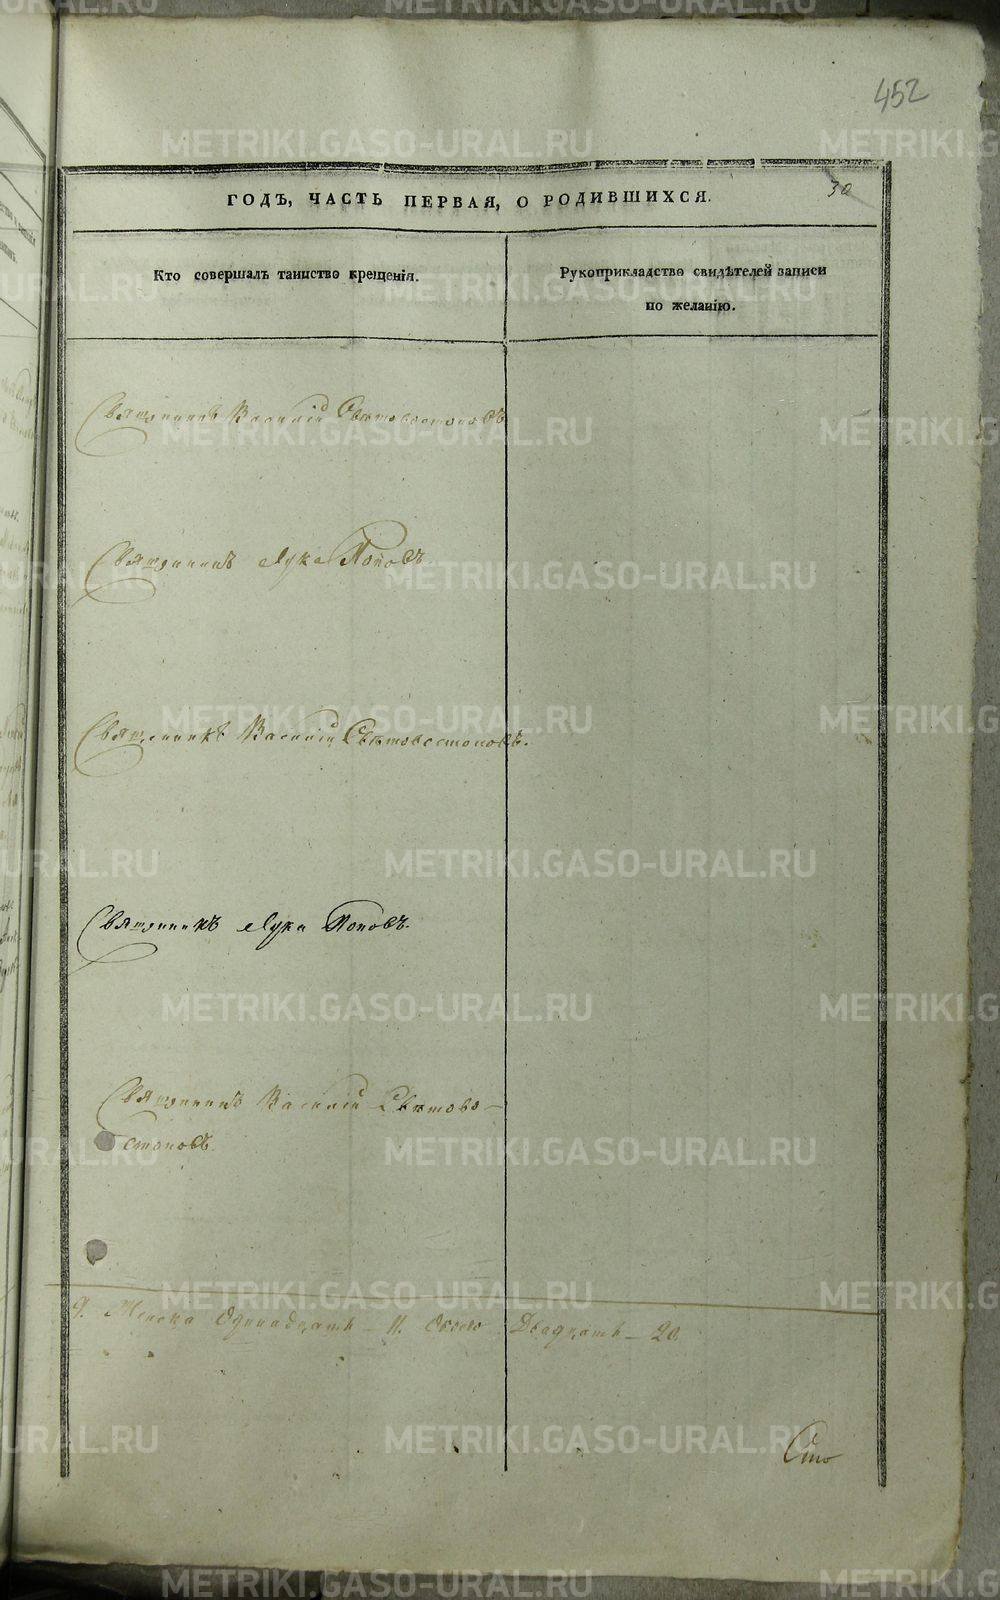 452
30
ГОДЪ, ЧАСТЬ ПЕРВАЯ, О РОДИВШИХСЯ.
Кто совершалъ таинство крещенія.
Рукоприкладство свидѣтелей записи
по желанію.
Священникъ Василій Свѣтовостоковъ
Священникъ Лука Поповъ.
Священникъ Василій Свѣтовостоковъ.
Священникъ Лука Поповъ.
Священникъ Василій Свѣтово-
стоковъ.
9. Женска Одинадцать - 11. Обоего Двадцать - 20
METRIKI.GASO-URAL.RU